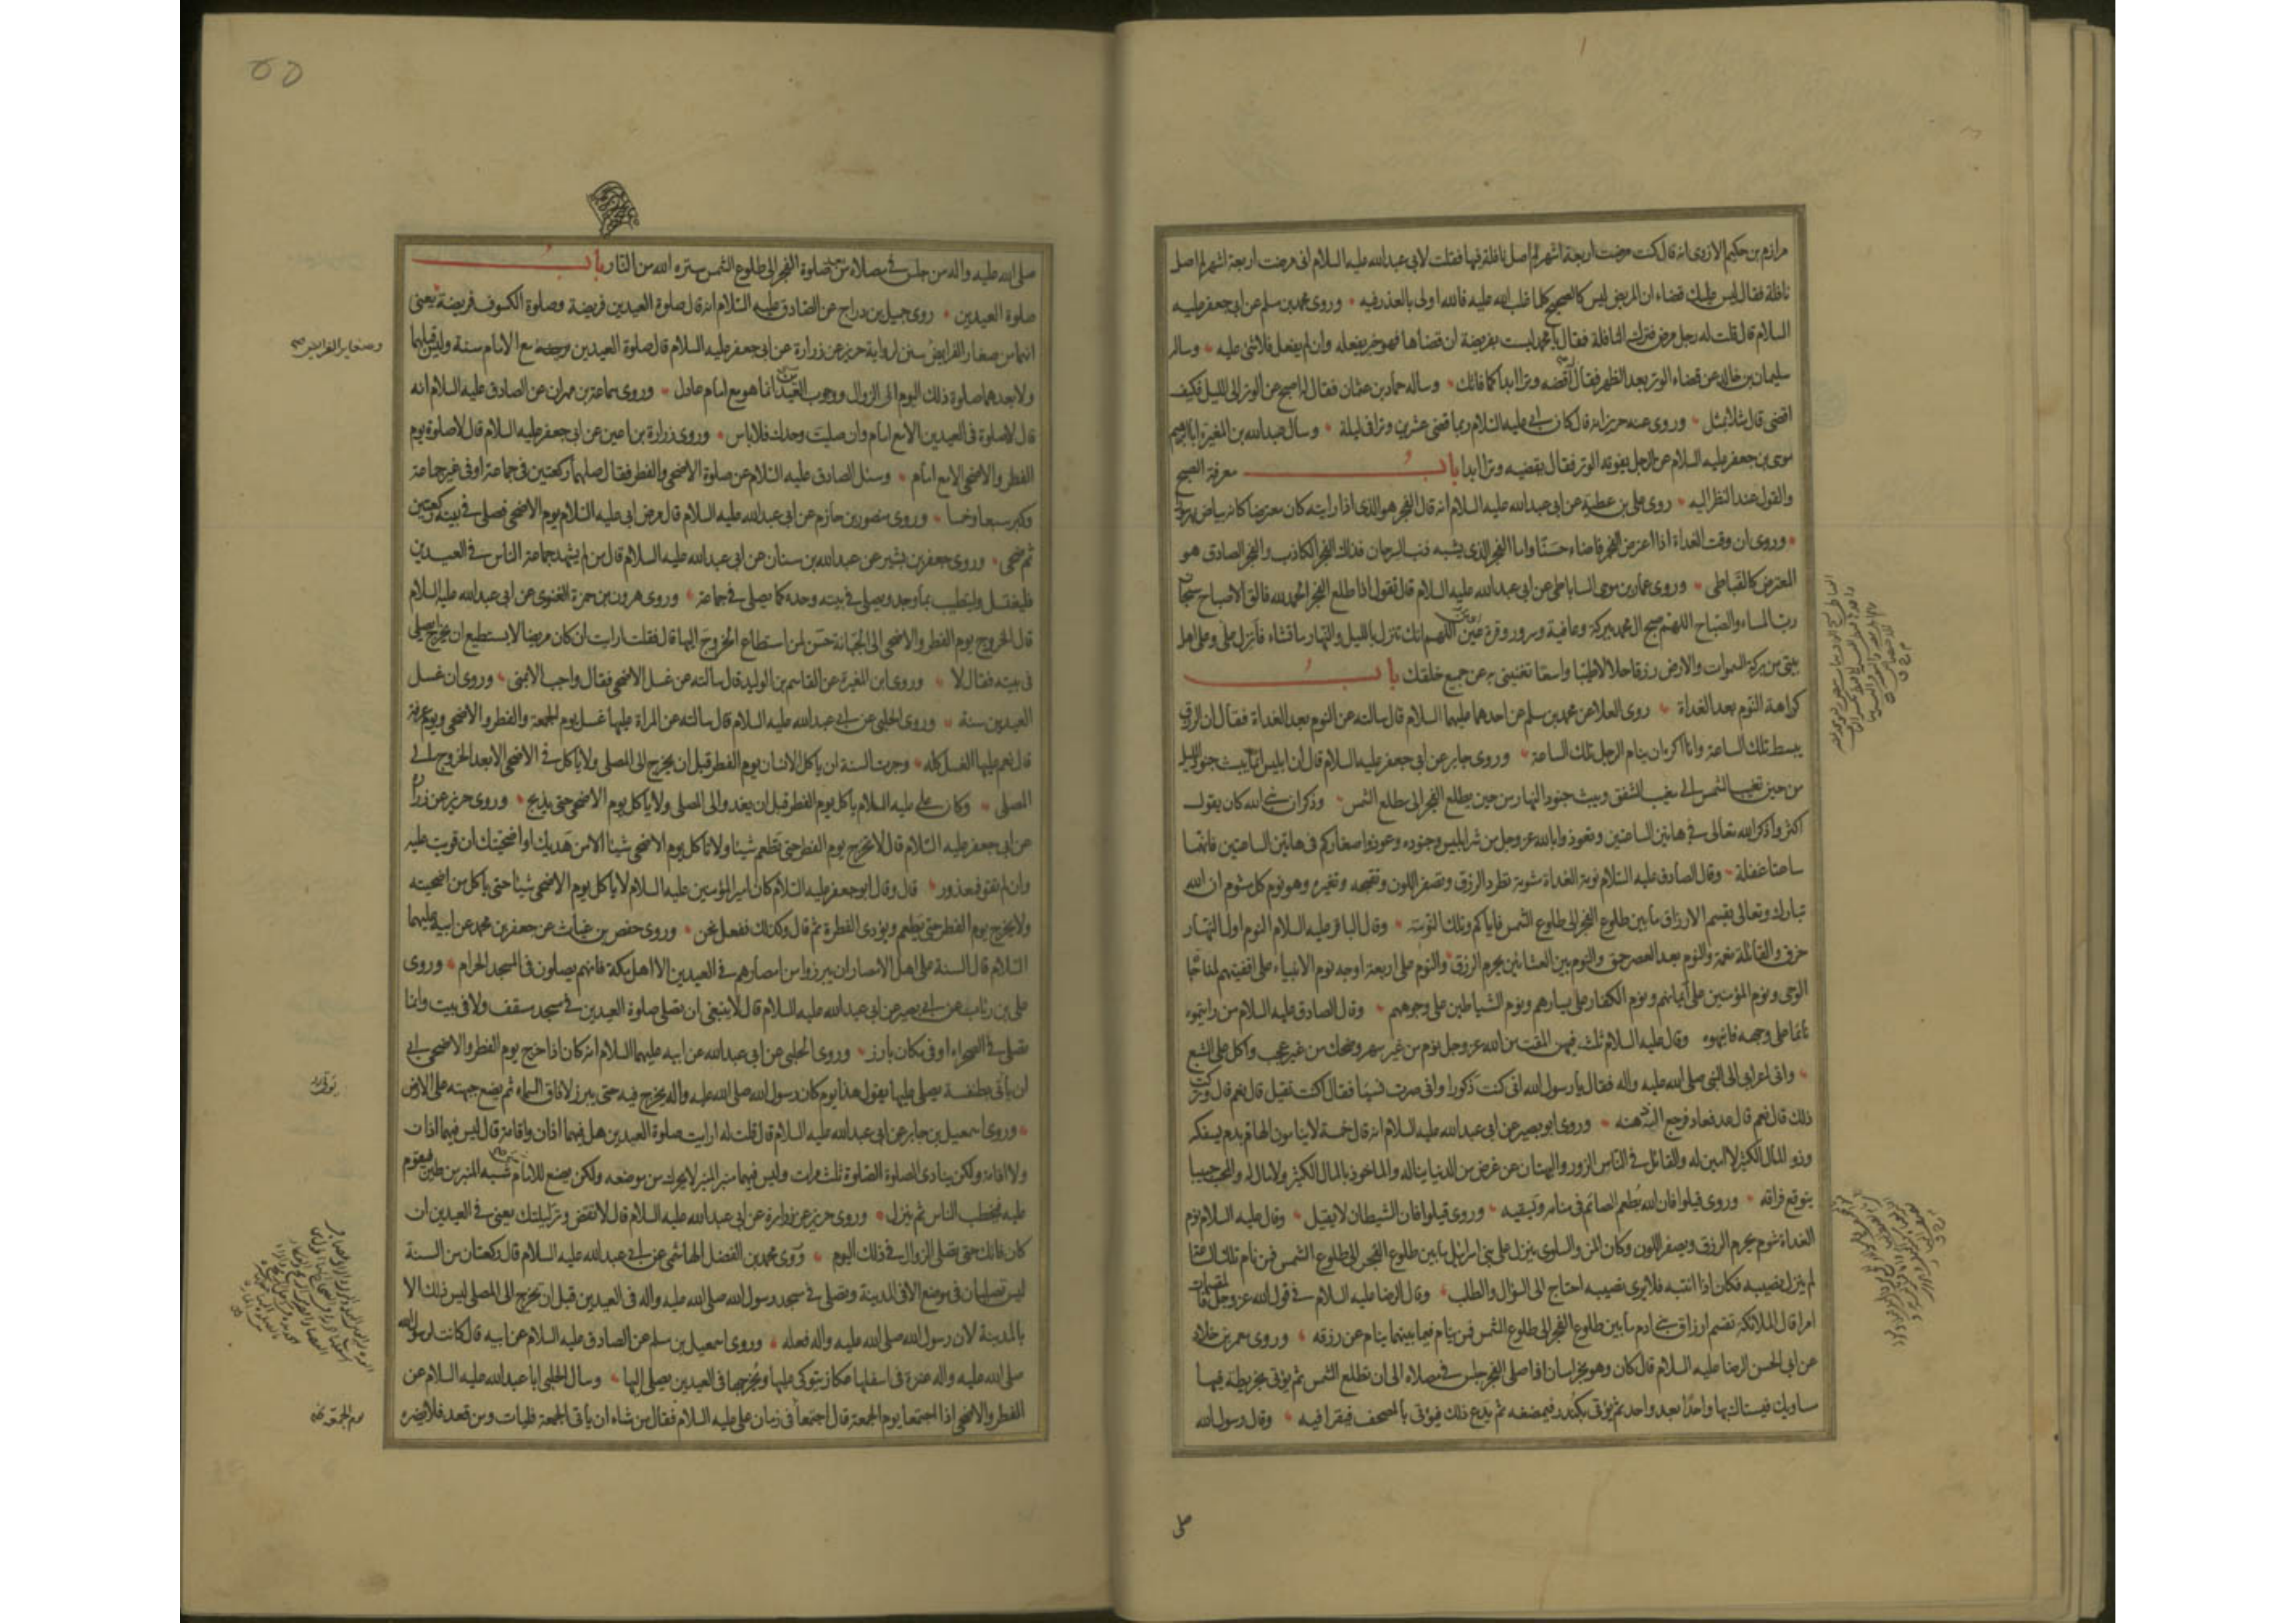 مرازم بن حكيم الازدى انه قال كنت مرضت اربعة اشهر لم اصل نافلة فيها فقلت لابى عبد الله عليه السلام انى مرضت اربعة اشهر لم اصل
نافلة فقال ليس عليك قضاء ان المريض ليس كالصحيح كلما غلب الله عليه فالله اولى بالعذر فيه وروى محمد بن مسلم عن ابى جعفر عليه
السلام قال قلت له رجل مرض فترك النافلة فقال يا محمد ليست بفريضة ان قضاها فهو خير يفعله وان لم يفعل فلا شئ عليه وسال
سليمان بن خالد عن قضاء الوتر بعد الظهر فقال اقضه وترا ابدا كما فاتك وساله حماد بن عثمان فقال اصبح عن الوتر الى الليل فكيف
اقضى قال مثلا بمثل وروى عنه حريز انه قال كان ابى عليه السلام ربما قضى عشرين وترا فى ليلة وسال عبد الله بن المغيرة ابا ابرهيم
موسى بن جعفر عليه السلام عن الرجل يفوته الوتر فقال يقضيه وترا ابدا باب معرفة الصبح
والقول عند النظر اليه روى على بن عطية عن ابى عبد الله عليه السلام انه قال الفجر هو الذى اذا رايته كان معترضا كانه بياض نهر سورا
وروى ان وقت الغداة اذا اعترض الفجر فاضاء حسنا واما الفجر الذى يشبه ذنب السرحان فذلك الفجر الكاذب والفجر الصادق هو
المعترض كالقباطى وروى عمار بن موسى الساباطى عن ابى عبد الله عليه السلام قال تقول اذا طلع الفجر الحمد لله فالق الاصباح سبحان
رب المساء والصباح اللهم صبح ال محمد ببركة وعافية وسرور وقرة عين اللهم انك تنزل بالليل والنهار ما تشاء فانزل على وعلى اهل
بيتى من بركة السموات والارض رزقا حلالا طيبا واسعا تغنينى به عن جميع خلقك باب
كراهة النوم بعد الغداة روى العلا عن محمد بن مسلم عن احدهما عليهما السلام قال سالته عن النوم بعد الغداة فقال ان الرزق
يبسط تلك الساعة وانا اكره ان ينام الرجل تلك الساعة وروى جابر عن ابى جعفر عليه السلام قال ان ابليس انما يبث جنود الليل
من حين تغيب الشمس الى مغيب الشفق ويبث جنود النهار من حين يطلع الفجر الى مطلع الشمس وذكر ان نبى الله كان يقول
اكثروا ذكر الله تعالى فى هاتين الساعتين وتعوذوا بالله عز وجل من شر ابليس وجنوده وعوذوا صغاركم فى هاتين الساعتين فانهما
ساعتا غفلة وقال الصادق عليه السلام نومة الغداة شومة تطرد الرزق وتصفر اللون وتقبحه وتغيره وهو نوم كل مشوم ان الله
تبارك وتعالى يقسم الارزاق ما بين طلوع الفجر الى طلوع الشمس فاياكم وتلك النومة وقال الباقر عليه السلام النوم اول النهار
خرق والقائلة نعمة والنوم بعد العصر حمق والنوم بين العشائين يحرم الرزق والنوم على اربعة اوجه نوم الانبياء على اقفيتهم لمناجاة
الوحى ونوم المؤمنين على ايمانهم ونوم الكفار على يسارهم ونوم الشياطين على وجوههم وقال الصادق عليه السلام من رايتموه
نائما على وجهه فانبهوه وقال عليه السلام ثلث فيهن المقت من الله عز وجل نوم من غير سهر وضحك من غير عجب واكل على الشبع
واتى اعرابى الى النبى صلى الله عليه واله فقال يا رسول الله انى كنت ذكورا وانى صرت نسيا فقال اكنت تقيل قال نعم قال وتركت
ذلك قال نعم قال عد فعاد فرجع اليه ذهنه وروى ابو بصير عن ابى عبد الله عليه السلام انه قال خمسة لا ينامون الهام بدم يسفكه
وذو المال الكثير لا امين له والقائل فى الناس الزور والبهتان عن عرض من الدنيا يناله والماخوذ بالمال الكثير ولا مال له والمحب حبيبا
يتوقع فراقه وروى قيلوا فان الله يطعم الصائم فى منامه ويسقيه وروى قيلوا فان الشيطان لا يقيل وقال عليه السلام نوم
الغداة شوم يحرم الرزق ويصفر اللون وكان المن والسلوى ينزل على بنى اسرائيل ما بين طلوع الفجر الى طلوع الشمس فمن نام تلك الساعة
لم ينزل نصيبه فكان اذا انتبه فلا يرى نصيبه احتاج الى السؤال والطلب وقال الرضا عليه السلام فى قول الله عز وجل فالمقسمات
امرا قال الملائكة تقسم ارزاق بنى ادم ما بين طلوع الفجر الى طلوع الشمس فمن ينام فيما بينهما ينام عن رزقه وروى معمر بن خلاد
عن ابى الحسن الرضا عليه السلام قال كان وهو بخراسان اذا صلى الفجر جلس فى مصلاه الى ان تطلع الشمس ثم يؤتى بخريطة فيها
مساويك فيستاك بها واحدا بعد واحد ثم يؤتى بكندر فيمضغه ثم يدع ذلك فيؤتى بالمصحف فيقرا فيه وقال رسول الله
صلى
٥٥
صلى الله عليه واله من جلس فى مصلاه من صلوة الفجر الى طلوع الشمس ستره الله من النار باب
صلوة العيدين روى جميل بن دراج عن الصادق عليه السلام انه قال صلوة العيدين فريضة وصلوة الكسوف فريضة يعنى
انهما من صغار الفرايض وصغار الفرايض سنن لرواية حريز عن زرارة عن ابى جعفر عليه السلام قال صلوة العيدين مع الامام سنة وليس قبلهما
ولا بعدهما صلوة ذلك اليوم الى الزوال ووجوب العيد انما هو مع امام عادل وروى سماعة بن مهران عن الصادق عليه السلام انه
قال لا صلوة فى العيدين الا مع امام وان صليت وحدك فلا باس وروى زرارة بن اعين عن ابى جعفر عليه السلام قال لا صلوة يوم
الفطر والاضحى الا مع امام وسئل الصادق عليه السلام عن صلوة الاضحى والفطر فقال صلهما ركعتين فى جماعة او فى غير جماعة
وكبر سبعا وخمسا وروى منصور بن حازم عن ابى عبد الله عليه السلام قال مرض ابى عليه السلام يوم الاضحى فصلى فى بيته ركعتين
ثم ضحى وروى جعفر بن بشير عن عبد الله بن سنان عن ابى عبد الله عليه السلام قال من لم يشهد جماعة الناس فى العيدين
فليغتسل وليتطيب بما وجد ويصلى فى بيته وحده كما يصلى فى جماعة وروى هرون بن حمزة الغنوى عن ابى عبد الله عليه السلام
قال الخروج يوم الفطر والاضحى الى الجبانة حسن لمن استطاع الخروج اليها قال فقلت ارايت ان كان مريضا لا يستطيع ان يخرج ايصلى
فى بيته فقال لا وروى ابن المغيرة عن القاسم بن الوليد قال سالته عن غسل الاضحى فقال واجب الا بمنى وروى ان غسل
العيدين سنة وروى الحلبى عن ابى عبد الله عليه السلام قال سالته عن المراة عليها غسل يوم الجمعة والفطر والاضحى ويوم عرفة
قال نعم عليها الغسل كله وجرت السنة ان ياكل الانسان يوم الفطر قبل ان يخرج الى المصلى ولا ياكل فى الاضحى الا بعد الخروج الى
المصلى وكان على عليه السلام ياكل يوم الفطر قبل ان يغدو الى المصلى ولا ياكل يوم الاضحى حتى يذبح وروى حريز عن زرارة
عن ابى جعفر عليه السلام قال لا تخرج يوم الفطر حتى تطعم شيئا ولا تاكل يوم الاضحى شيئا الا من هديك او اضحيتك ان قويت عليه
وان لم تقو فمعذور قال وقال ابو جعفر عليه السلام كان امير المؤمنين عليه السلام لا ياكل يوم الاضحى شيئا حتى ياكل من اضحيته
ولا يخرج يوم الفطر حتى يطعم ويؤدى الفطرة ثم قال وكذلك نفعل نحن وروى حفص بن غياث عن جعفر بن محمد عن ابيه عليهما
السلام قال السنة على اهل الامصار ان يبرزوا من امصارهم فى العيدين الا اهل مكة فانهم يصلون فى المسجد الحرام وروى
على بن رئاب عن ابى بصير عن ابى عبد الله عليه السلام قال لا ينبغى ان تصلى صلوة العيدين فى مسجد مسقف ولا فى بيت وانما
تصلى فى الصحراء او فى مكان بارز وروى الحلبى عن ابى عبد الله عن ابيه عليهما السلام انه كان اذا خرج يوم الفطر والاضحى ابى
ان ياتى بطنفسة يصلى عليها يقول هذا يوم كان رسول الله صلى الله عليه واله يخرج فيه حتى يبرز لافاق السماء ثم يضع جبهته على الارض
وروى اسمعيل بن جابر عن ابى عبد الله عليه السلام قال قلت له ارايت صلوة العيدين هل فيهما اذان واقامة قال ليس فيهما اذان
ولا اقامة ولكن ينادى الصلوة الصلوة ثلث مرات وليس فيهما منبر المنبر لا يحرك من موضعه ولكن يصنع للامام شبه المنبر من طين فيقوم
عليه فيخطب الناس ثم ينزل وروى حريز عن زرارة عن ابى عبد الله عليه السلام قال لا تقض وتر ليلتك يعنى فى العيدين ان
كان فاتك حتى تصلى الزوال فى ذلك اليوم وروى محمد بن الفضل الهاشمى عن ابى عبد الله عليه السلام قال ركعتان من السنة
ليس تصليان فى موضع الا فى المدينة وتصلى فى مسجد رسول الله صلى الله عليه واله فى العيدين قبل ان تخرج الى المصلى ليس ذلك الا
بالمدينة لان رسول الله صلى الله عليه واله فعله وروى اسمعيل بن مسلم عن الصادق عليه السلام عن ابيه قال كانت لرسول الله
صلى الله عليه واله عنزة فى اسفلها عكاز يتوكى عليها ويخرجها فى العيدين يصلى اليها وسال الحلبى ابا عبد الله عليه السلام عن
الفطر والاضحى اذا اجتمعا يوم الجمعة قال اجتمعا فى زمان على عليه السلام فقال من شاء ان ياتى الجمعة فليات ومن قعد فلا يضره
وصغار الفرايض صح